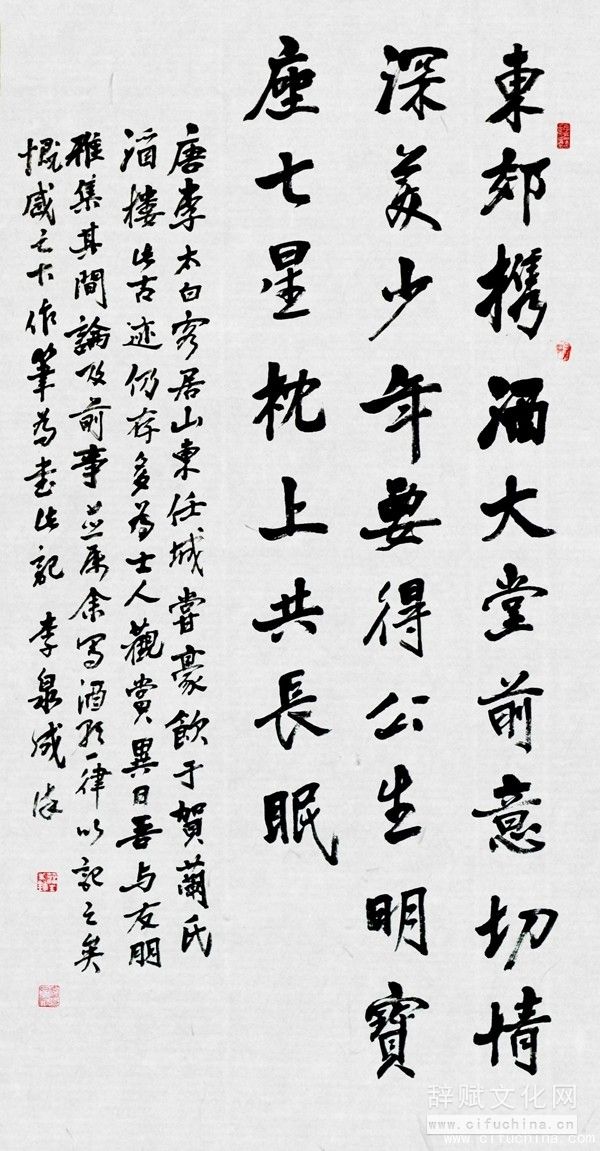 東郊携酒大堂前意切情
深美少年要得公生明寶
座七星枕上共長眠
唐李太白客居山東任城嘗豪飲于賀蘭氏
酒樓此古迹仍存多為士人觀賞異日吾与友朋
雅集其間論及前事並屬余写酒歌一律以記之矣
慨感之下作筆為書此記 李泉成
辞赋文化网
www.cifuchina.cn
www.cifuchina.com